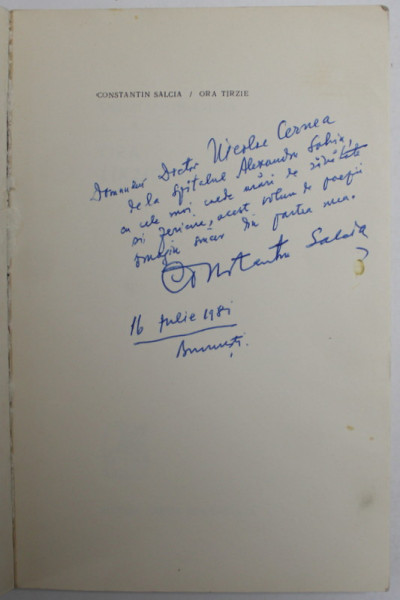 CONSTANTIN SALCIA / ORA TÎRZIE
Domnului Doctor Nicolae Cernea
de la Spitalul Alexandru Sahia,
cu cele mai calde urări de sănătate
și fericire, acest volum de poezii
omagiu sincer din partea mea.
Constantin Salcia
16 Iulie 1981
București.